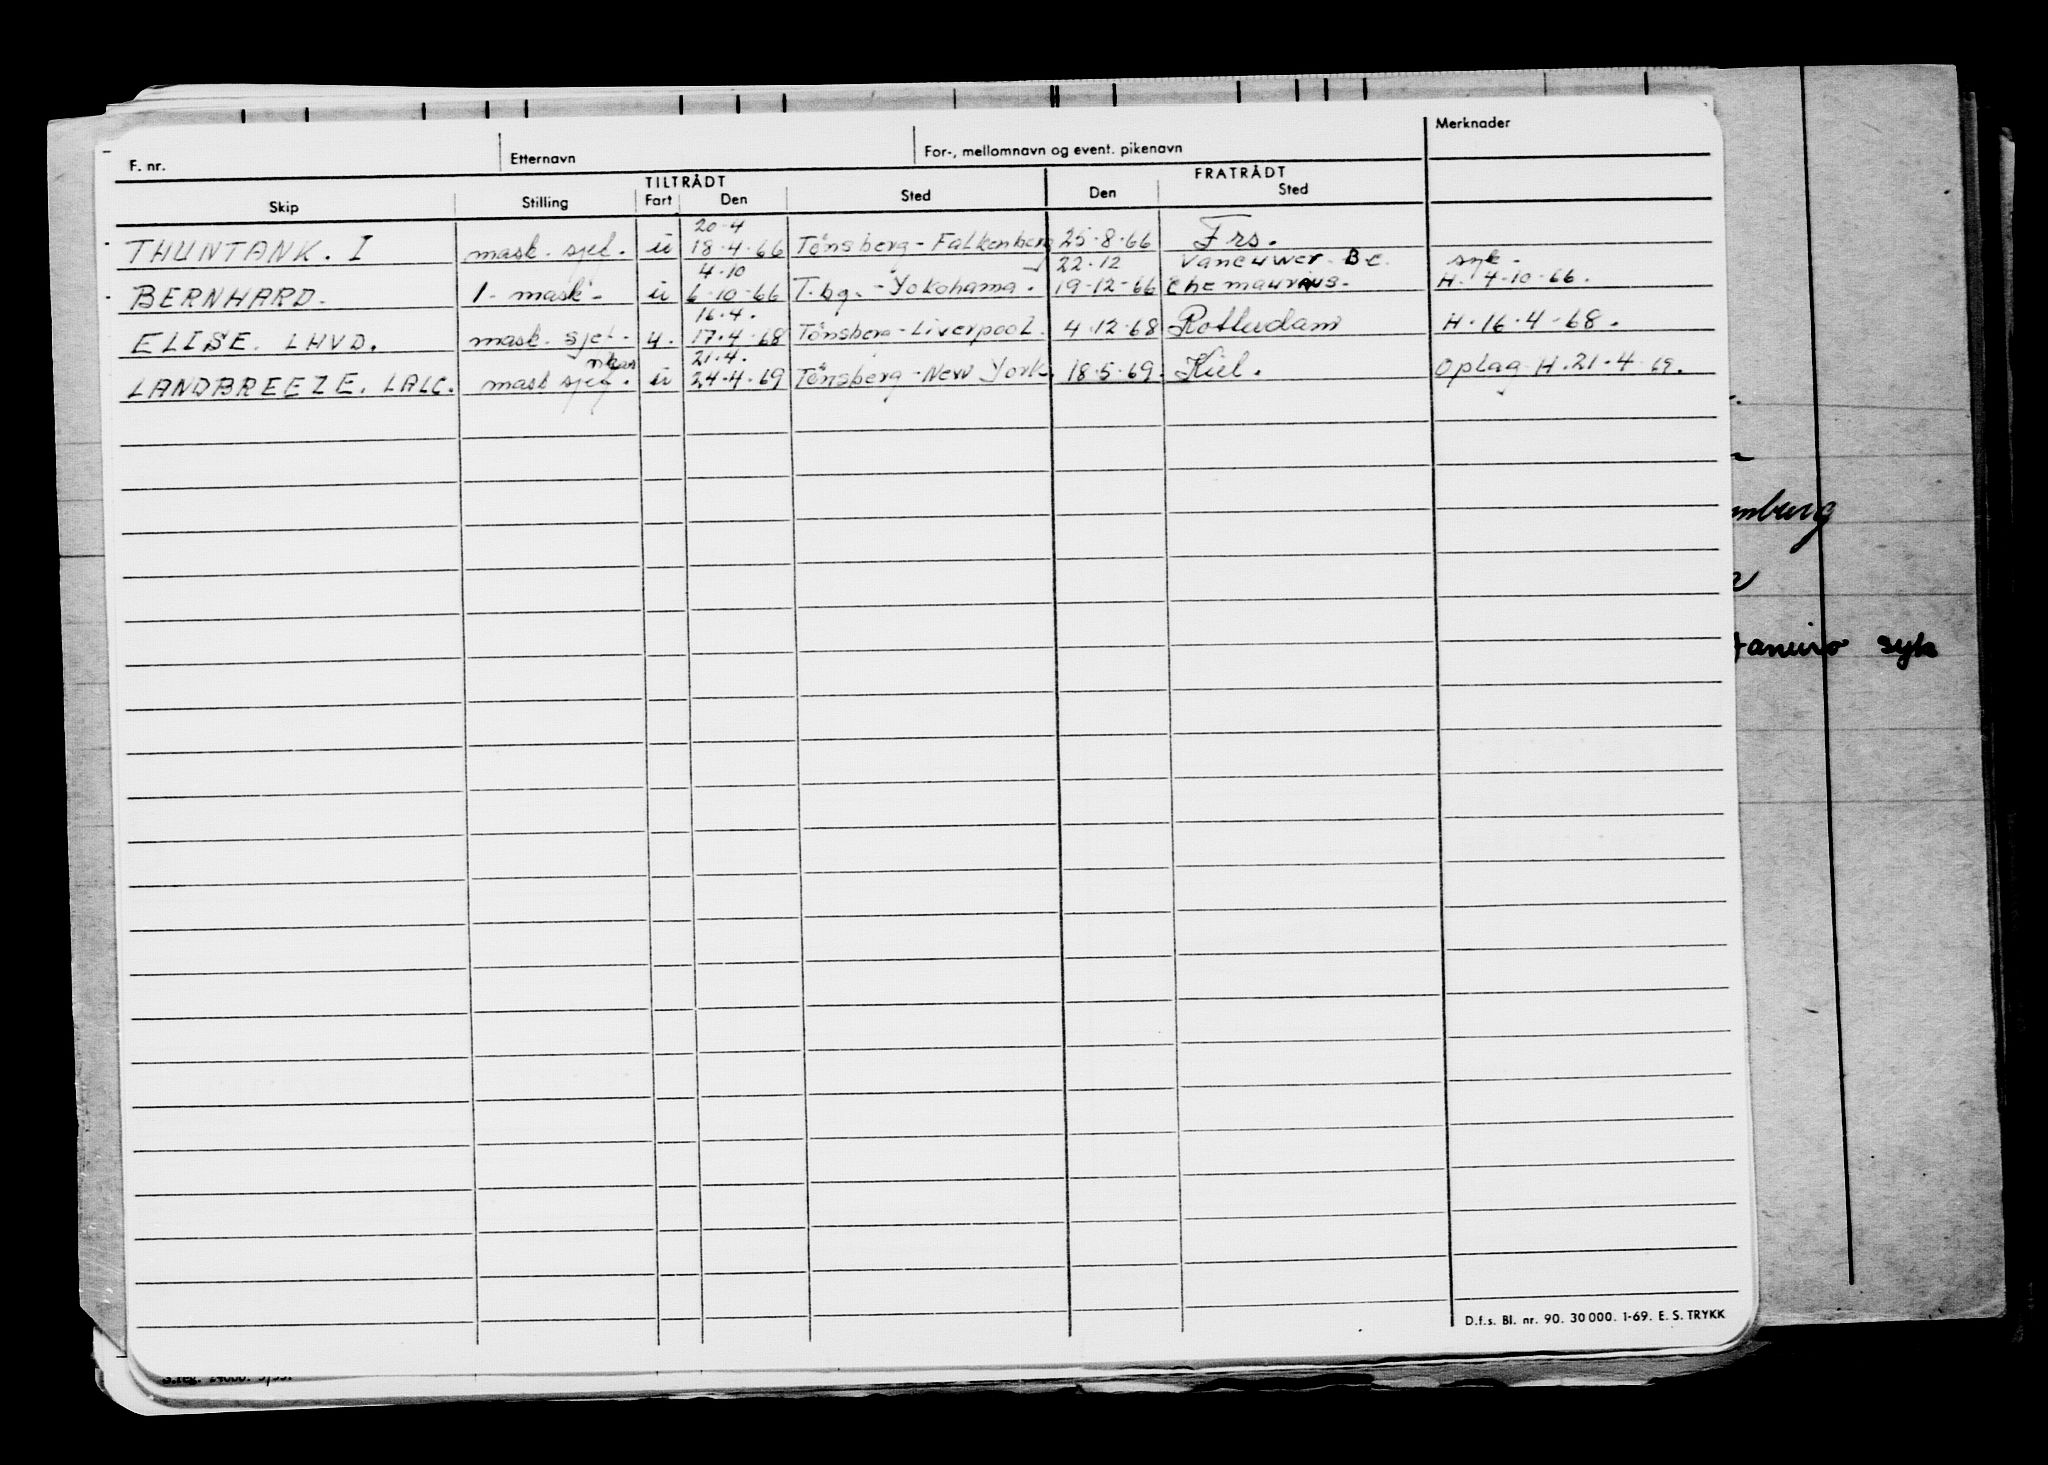 F. nr. Etternavn For-, mellomnavn og event. pikenavn Merknader
TILTRÅDT FRATRÅDT
Skip Stilling Fart Den Sted Den Sted
20-4
THUNTANK. I mask. sjef. u 18-4-66 Tönsberg-Falkenberg 25-8-66 Frs.
4-10 22-12 Vancuwer. B c. syk.
BERNHARD. 1. mask. u 6-10-66 T.bg.-Yokohama. 19-12-66 H. 4-10-66.
16.4.
ELISE. LHVD. mask. sjef. u. 17.4.68 Tönsberg-Liverpool. 4-12-68 Rotterdam H.16.4-68.
21.4.
LANDBREEZE. LALC. mask sjef. u 24-4-69 Tönsberg-New York. 18-5-69. Kiel. Oplag H.21-4-69.
mburg
Janeiro syk
D.f.s. Bl. nr. 90. 30 000. 1-69. E. S. TRYKK